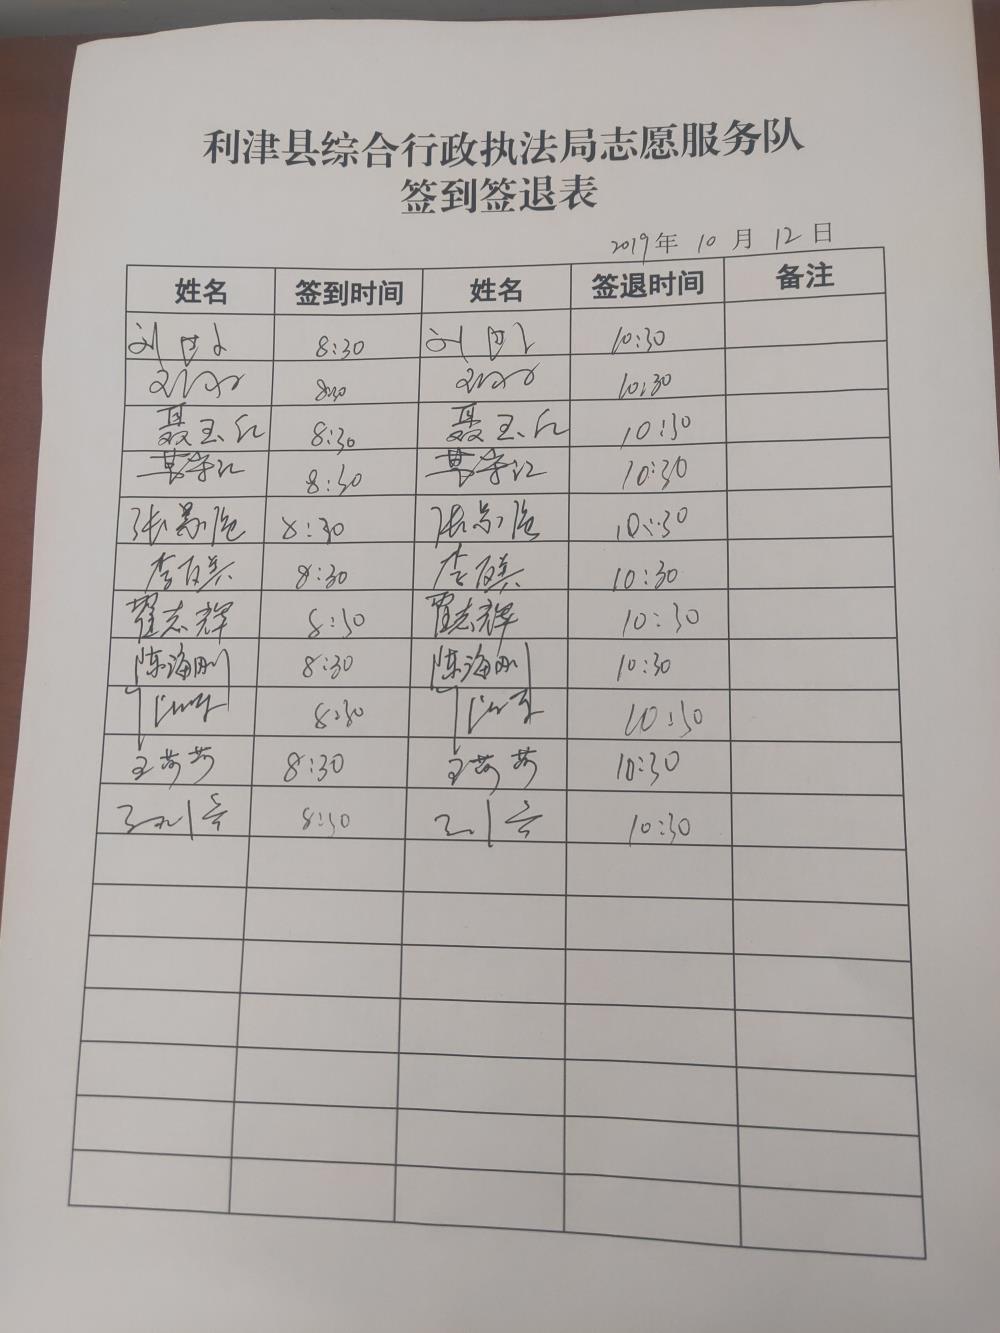 利津县综合行政执法局志愿服务队
签到签退表
2019年 10 月 12 日
姓名 签到时间 姓名 签退时间 备注
刘 8:30 刘 10:30
8:30 10:30
聂玉红 8:30 聂玉红 10:30
8:30 10:30
张景 8:30 张景 10:30
李 8:30 李 10:30
翟志辉 8:30 翟志辉 10:30
陈海刚 8:30 陈海刚 10:30
8:30 10:30
王芳芳 8:30 王芳芳 10:30
8:30 10:30